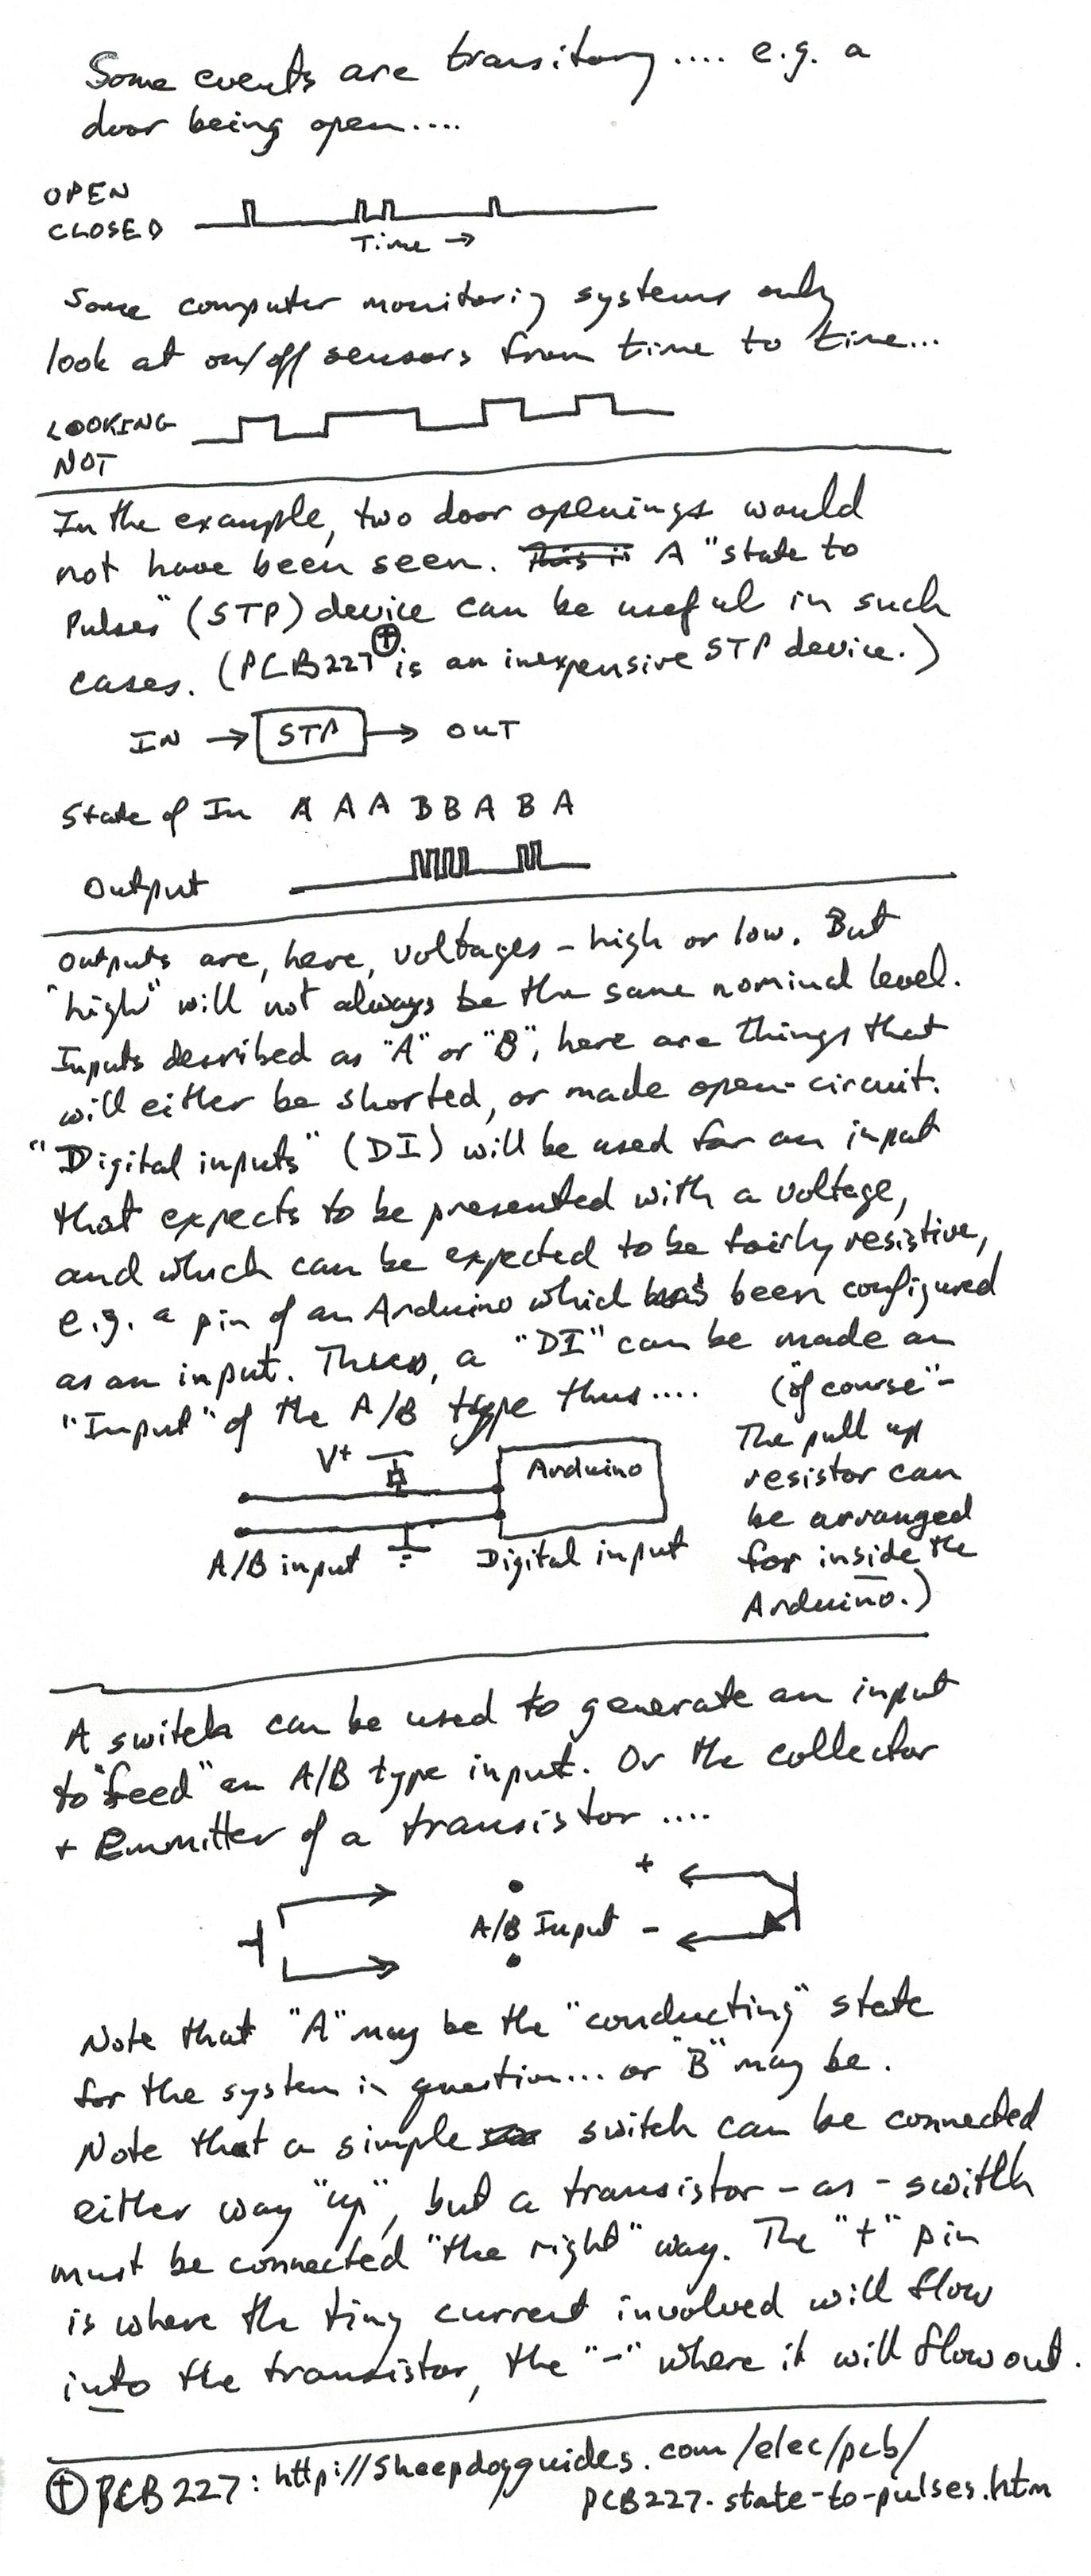 Some events are transitory.... e.g. a
door being open....
OPEN
CLOSED
Time →
Some computer monitoring systems only
look at on/off sensors from time to time...
LOOKING
NOT
In the example, two door openings would
not have been seen. This is A "state to
Pulses" (STP) device can be useful in such
cases. (PCB227⊕ is an inexpensive STP device.)
IN → STP → OUT
State of In A A A B B A B A
Output
Outputs are, here, voltages - high or low. But
"high" will not always be the same nominal level.
Inputs desribed as "A" or "B", here are things that
will either be shorted, or made open-circuit.
"Digital inputs" (DI) will be used for an input
that expects to be presented with a voltage,
and which can be expected to be fairly resistive,
e.g. a pin of an Arduino which has been configured
as an input. Thus, a "DI" can be made an
"Input" of the A/B type thus....
("of course" -
The pull up
resistor can
be arranged
for inside the
Arduino.)
V+
Arduino
A/B input
Digital input
A switch can be used to generate an input
to "feed" an A/B type input. Or the collector
+ Emmitter of a transistor....
+
A/B Input -
Note that "A" may be the "conducting" state
for the system in question... or "B" may be.
Note that a simple switch can be connected
either way "up", but a transistor-as-swithh
must be connected "the right" way. The "+" pin
is where the tiny current involved will flow
into the transistor, the "-" where it will flow out.
⊕ PCB227: http://sheepdogguides.com/elec/pcb/
PCB227-state-to-pulses.htm